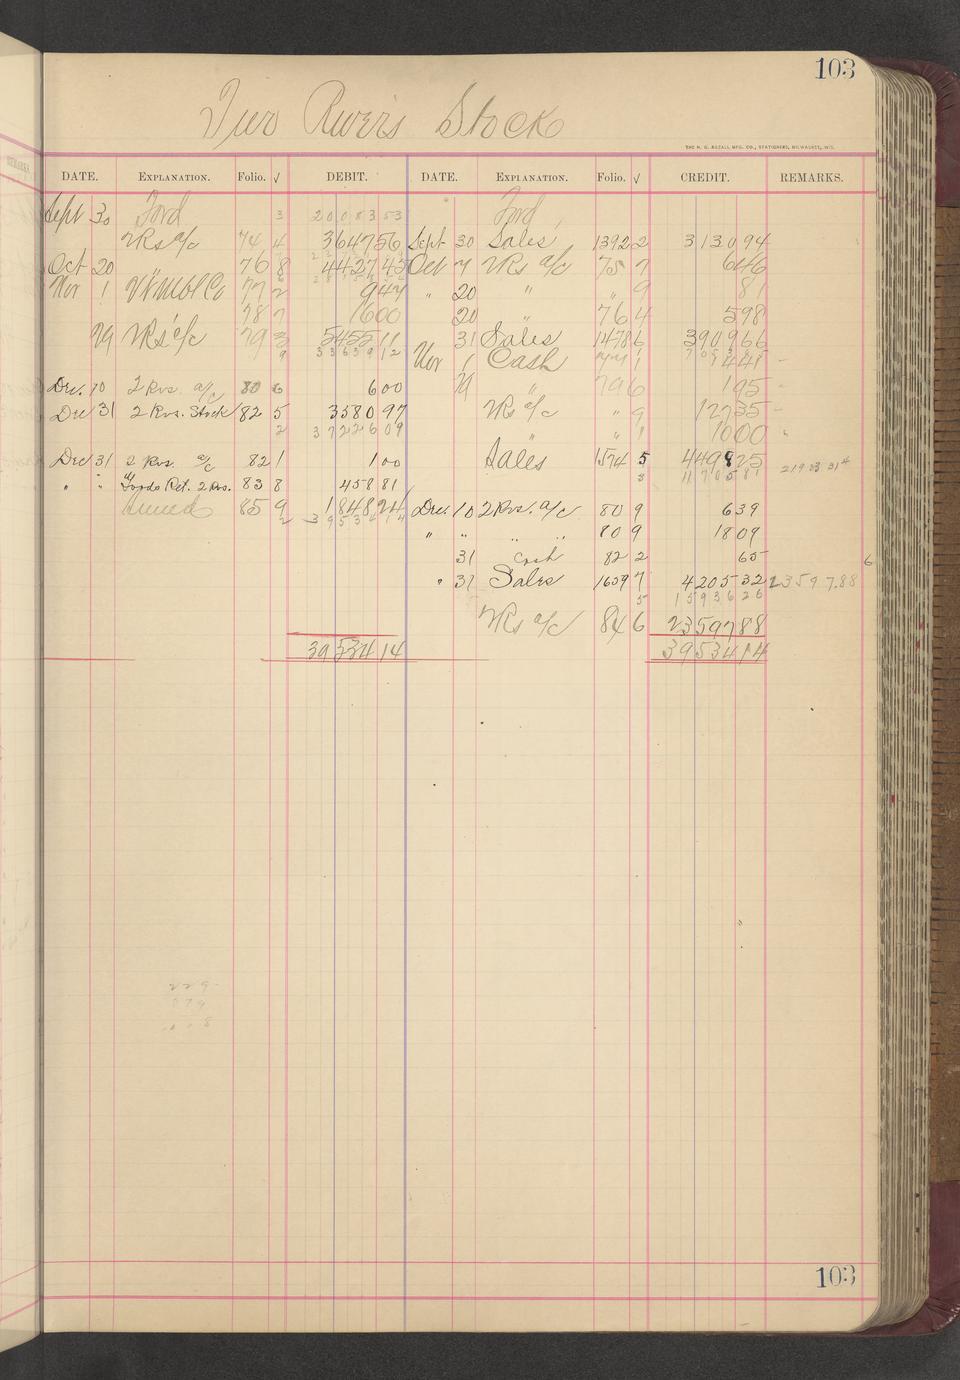 103
Two Rivers Stock
THE H. G. RAZALL MFG. CO., STATIONERS, MILWAUKEE, WIS.
DATE. EXPLANATION. Folio. √ DEBIT. DATE. EXPLANATION. Folio. √ CREDIT. REMARKS.
Sept 30 Ford 3 2008353 Ford
2 Rs a/c 74 4 364756 Sept 30 Sales 1392 2 313094
Oct 20 76 8 442745 Oct 7 2 Rs a/c 75 7 646
Nov 1 77 2 947 " 20 " " 9 81
78 7 1600 20 " 76 4 598
29 2 Rs a/c 79 3 545511 31 Sales 1478 6 390966
9 3363912 Nov 1 Cash 77 1 1441
Dec. 10 2 Rvs. a/c 80 6 600 29 " 79 6 195
Dec 31 2 Rvs. Stock 82 5 358097 2 Rs a/c " 9 12735
2 3722609 " " 1 1000
Dec 31 2 Rvs. a/c 82 1 100 Sales 1574 5 449825
3 1170581
" " Goods Ret. 2 Rvs. 83 8 45881
85 9 184824 Dec. 10 2 Rvs. a/c 80 9 639
2 3953414
" " " " 80 9 1809
31 Cash 82 2 65 6
" 31 Sales 1659 7 420532 23597.88
5 1593626
2 Rs a/c 84 6 2359788
3953414 3953414
229
879
103